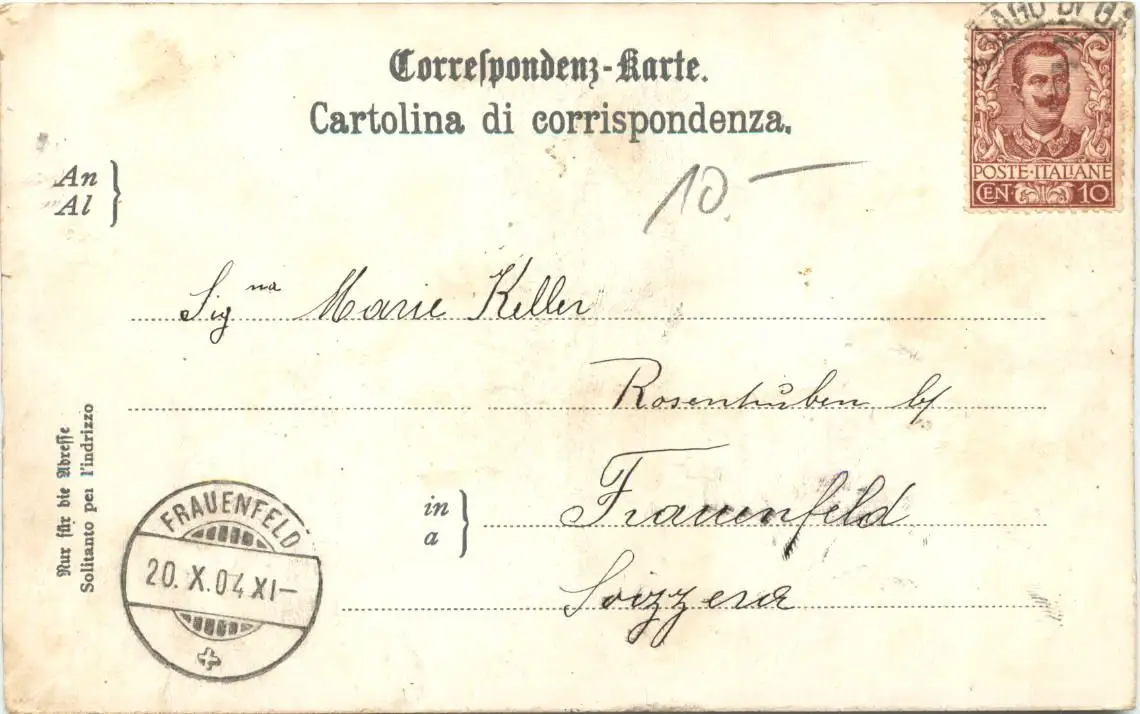 LAGO DI GA
Correspondenz-Karte.
Cartolina di corrispondenza.
POSTE·ITALIANE
CEN 10
An
Al
10.—
Signa Marie Keller
Rosenhuben b/
in
a
Frauenfeld
Svizzera
Nur für die Adresse
Solitanto per l'indrizzo
FRAUENFELD
20. X. 04 XI—